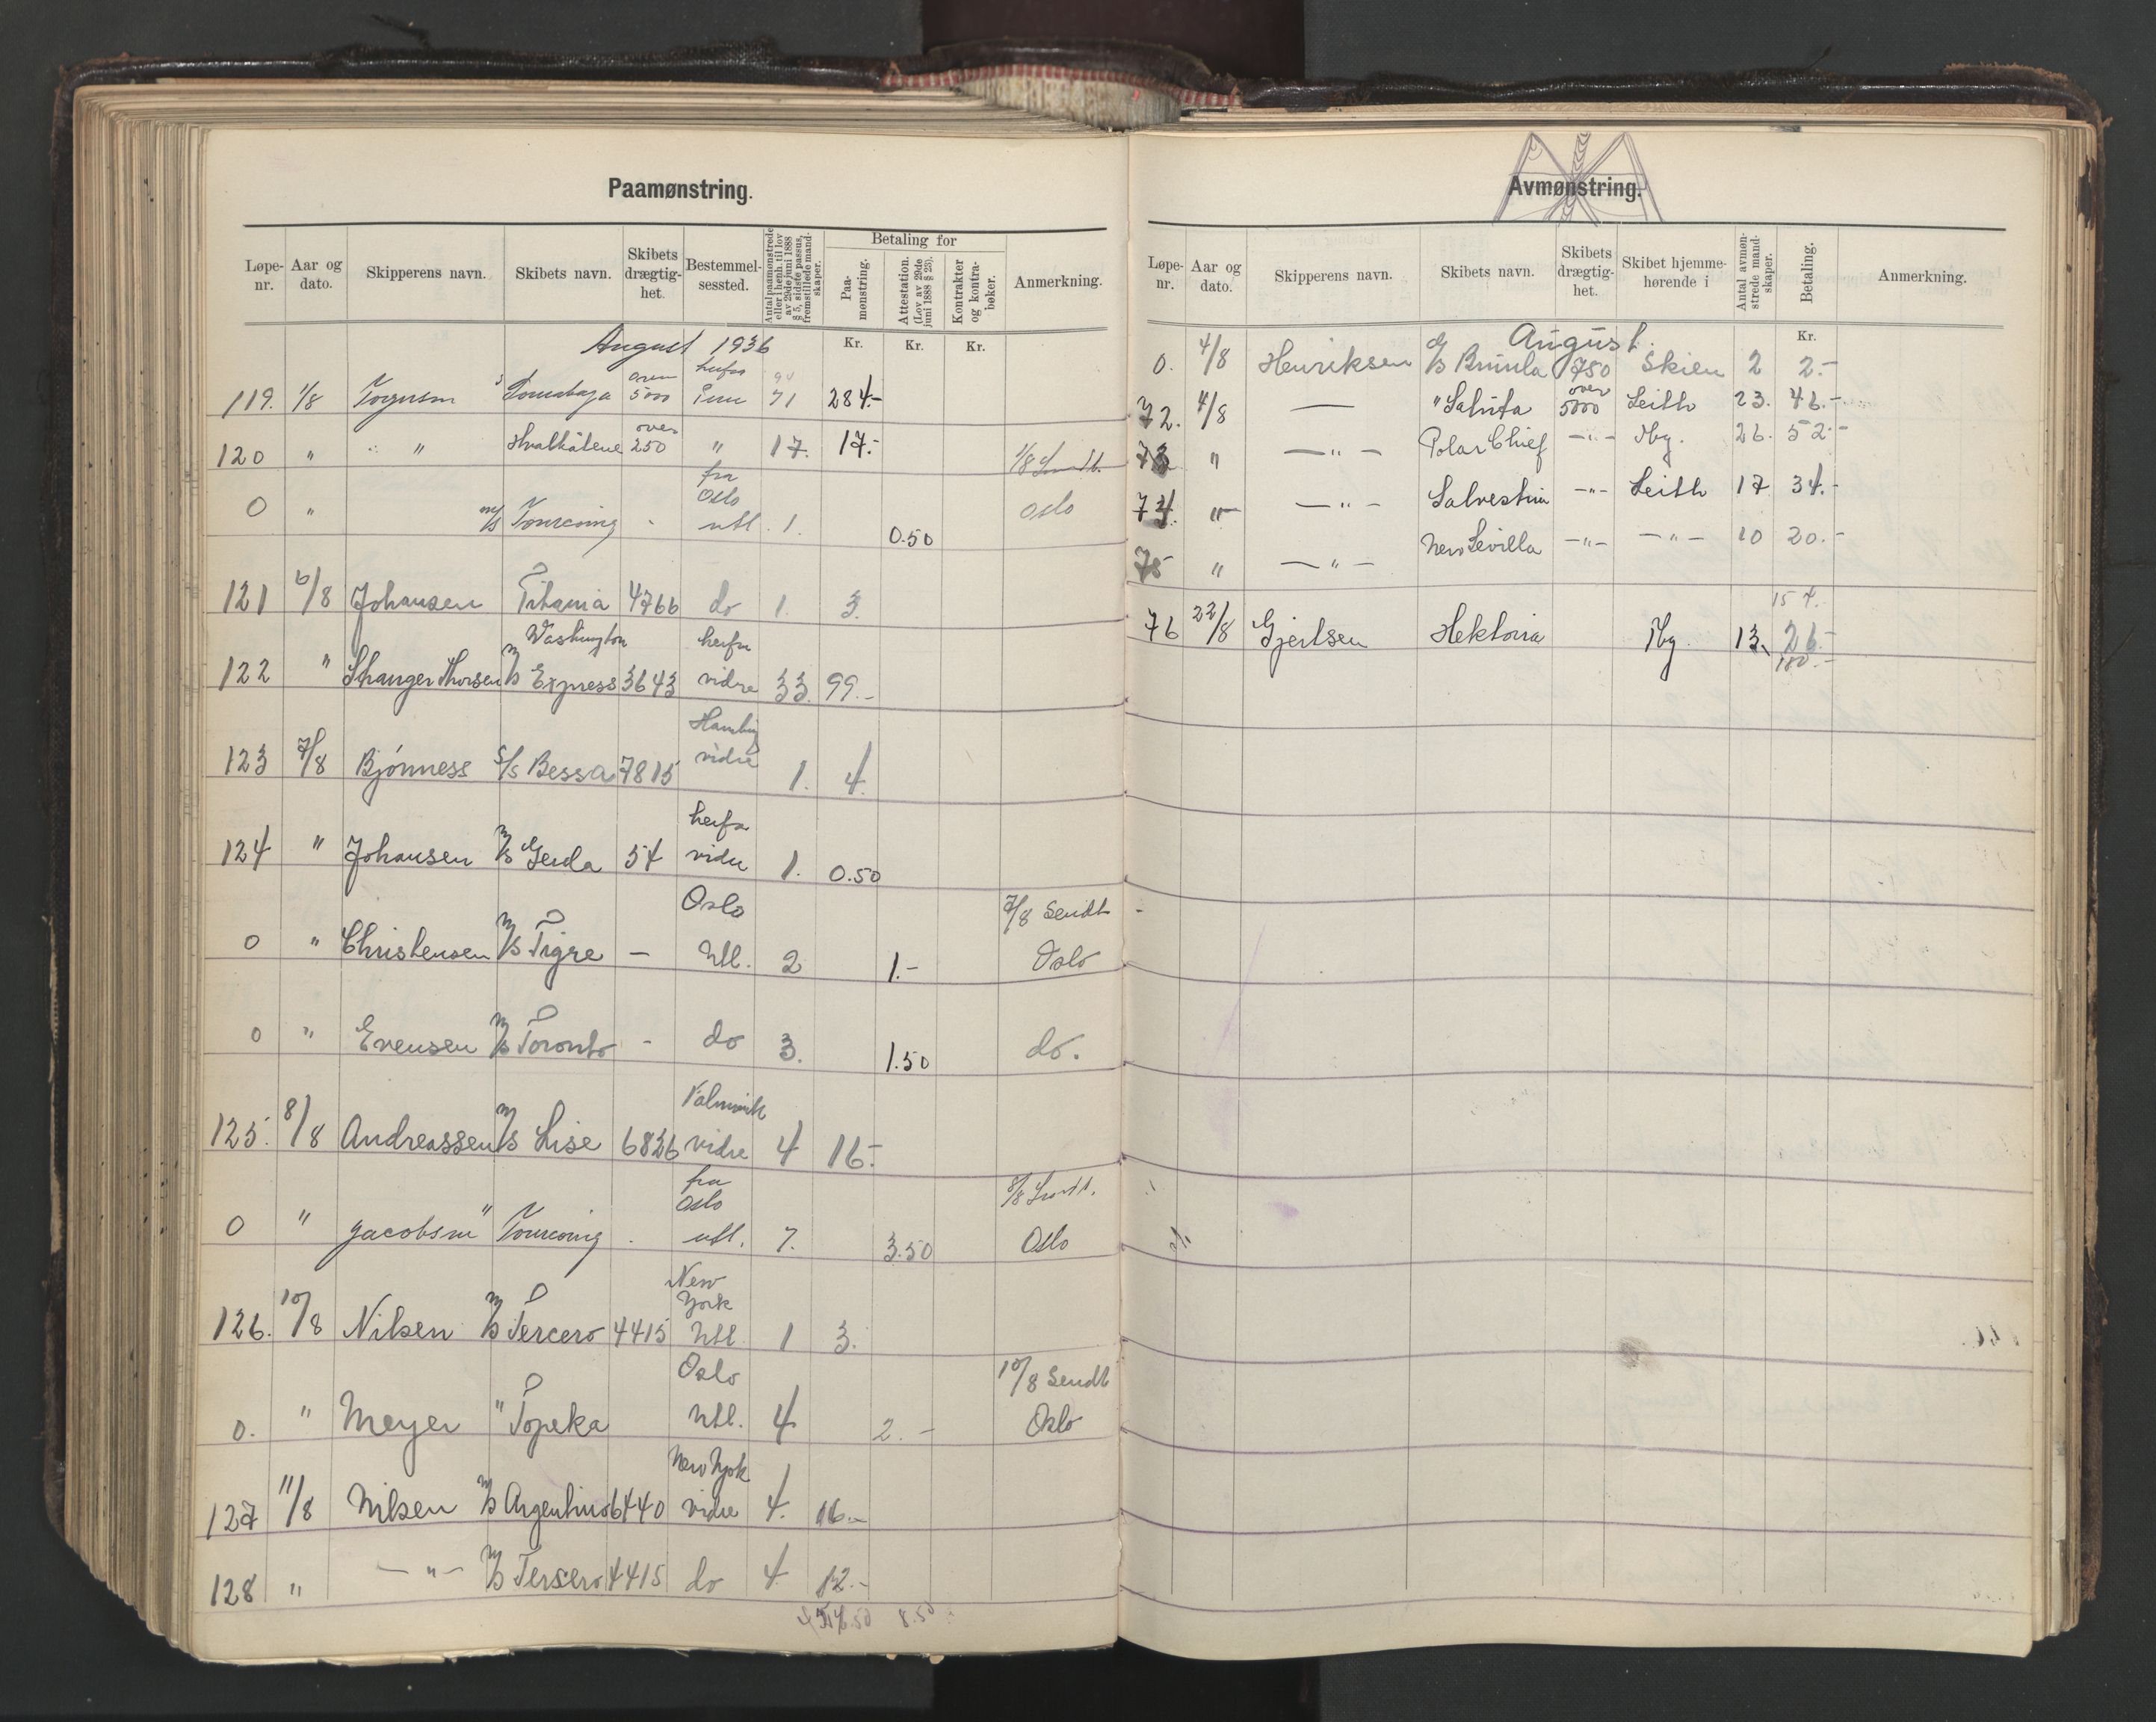 Paamønstring.
Løpe-nr. Aar og dato. Skipperens navn. Skibets navn. Skibets drægtig-het. Bestemmel-sessted. Antal paamønstrede eller i henh. til lov av 29de juni 1888 § 5, sidste passus, fremstillede mand-skaper. Betaling for Paa-mønstring. Attestation. (Lov av 29de juni 1888 § 23). Kontrakter og kontra-bøker. Anmerkning.
August 1936 Kr. Kr. Kr.
herfra
119. 1/8 5000 71 284.-
over
120 " " Hvalkåtene 250 " 17. 17.- 1/8 Sendt
fra Oslo
0 " m/s Tourcoing - utl. 1. 0.50 Oslo
121 6/8 Johansen Titania 4766 do 1. 3.
Washington herfra
122 " Stranger Thorsen m/s Express 3643 vidre 33. 99.-
123 7/8 Bjønness s/s Bessa 7815 vidre 1. 4.
herfra
124 " Johansen m/s Gerda 54 vidre 1. 0.50
Oslo 7/8 Sendt
0 " Christensen m/s Tigre - Utl. 2 1.- Oslo
0 " Evensen m/s Toronto - do 3. 1.50 do.
125. 8/8 Andreassen m/s Lise 6826 vidre 4 16.-
fra Oslo 8/8 Sendt.
0 " Jacobsen " Tourcoing . utl. 7. 3.50 Oslo
New York
126. 10/8 Nilsen m/s Tercero 4415 Utl. 1 3.
Oslo 10/8 Sendt
0. " Meyer " Topeka Utl. 4 2.- Oslo
New York
127 11/8 Nilsen m/s Argentino 6440 vidre 4. 16.-
128 " -"- m/s Tersero 4415 do 4. 12.-
8.50
Avmønstring.
Løpe-nr. Aar og dato. Skipperens navn. Skibets navn. Skibets drægtig-het. Skibet hjemme-hørende i Antal avmøn-strede mand-skaper. Betaling. Anmerkning.
August. Kr.
0. 4/8 Henriksen Brumla 750 Skien 2 2.-
72. 4/8 — " Saluta over 5000 Leith 23. 46.-
73 " -"- Polar Chief -"- Tbg. 26. 52.-
74. " -"- Salvestria -"- Leith 17 34.-
75 " -"- New Sevilla -"- -"- 10 20.-
154.-
76 22/8 Gjertsen Hektoria Tbg. 13. 26.-
180.-